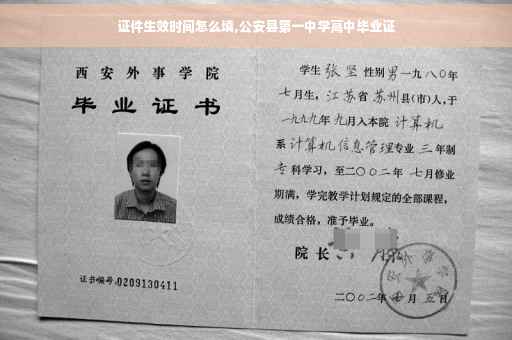 证件生效时间怎么填,公安县第一中学高中毕业证
西安外事学院
毕业证书
证书编号:0209130411
学生 张坚 性别 男 一九八〇年
七月生，江苏省苏州县(市)人,于
一九九九年九月入本院 计算机
系 计算机信息管理专业 三年制
专科学习，至二〇〇二年七月修业
期满，学完教学计划规定的全部课程，
成绩合格，准予毕业。
院长
二〇〇二年 月五日